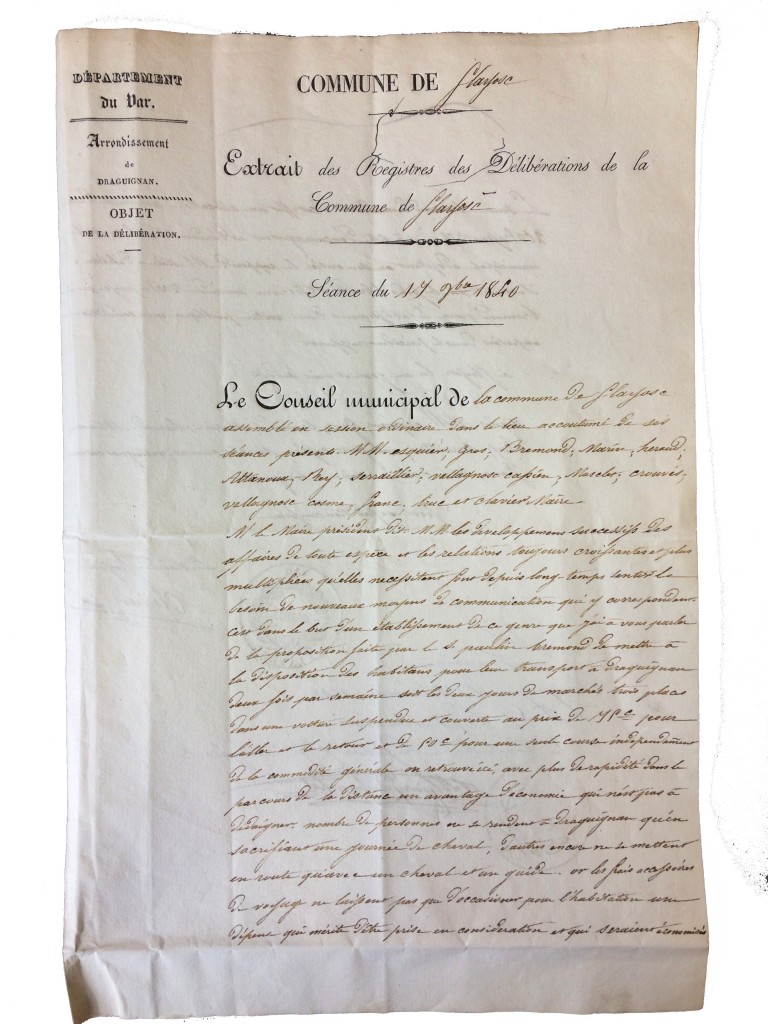 DÉPARTEMENT
du Var.
Arrondissement
de
DRAGUIGNAN.
OBJET
DE LA DÉLIBÉRATION.
COMMUNE DE flayosc
Extrait des Registres des Délibérations de la
Commune de flayosc
Séance du 17 9bre 1840
Le Conseil municipal de la commune de flayosc
assemblé en session ordinaire dans le lieu accoutumé de ses
séances présents M.M. esquier, gros, Bremond, Marin, heraud,
Attanoux, Rey, serraillier, vallagnosc cassien, Mascles, crouvès,
vallagnosc cosme, franc, truc et clavier Maire
M. le Maire président dit M.M. les developpemens successifs des
affaires de toute espèce et les relations toujours croissantes et plus
multipliées qu'elles necessitent font depuis long-temps sentir le
besoin de nouveaux moyens de communication qui y correspondent.
c'est dans le but d'un établissement de ce genre que j'ai à vous parler
de la proposition faite par le s. paulin bremond de mettre à
la disposition des habitans pour leur transport à draguignan
deux fois par semaine soit les deux jours de marché trois places
dans une voiture suspendue et couverte au prix de 75c pour
l'aller et le retour et de 50c pour une seule course indépendament
de la commodité générale on retrouve ici, avec plus de rapidité dans le
parcours de la distance un avantage d'économie qui n'est pas à
dedaigner. nombre de personnes ne se rendent à draguignan qu'en
sacrifiant une journée de cheval, d'autres encore ne se mettent
en route qu'avec un cheval et un guide. or les frais accessoires
de voyage ne laissent pas que d'occasioner pour l'habitation une
dépense qui mérite d'être prise en consideration et qui seraient économisés